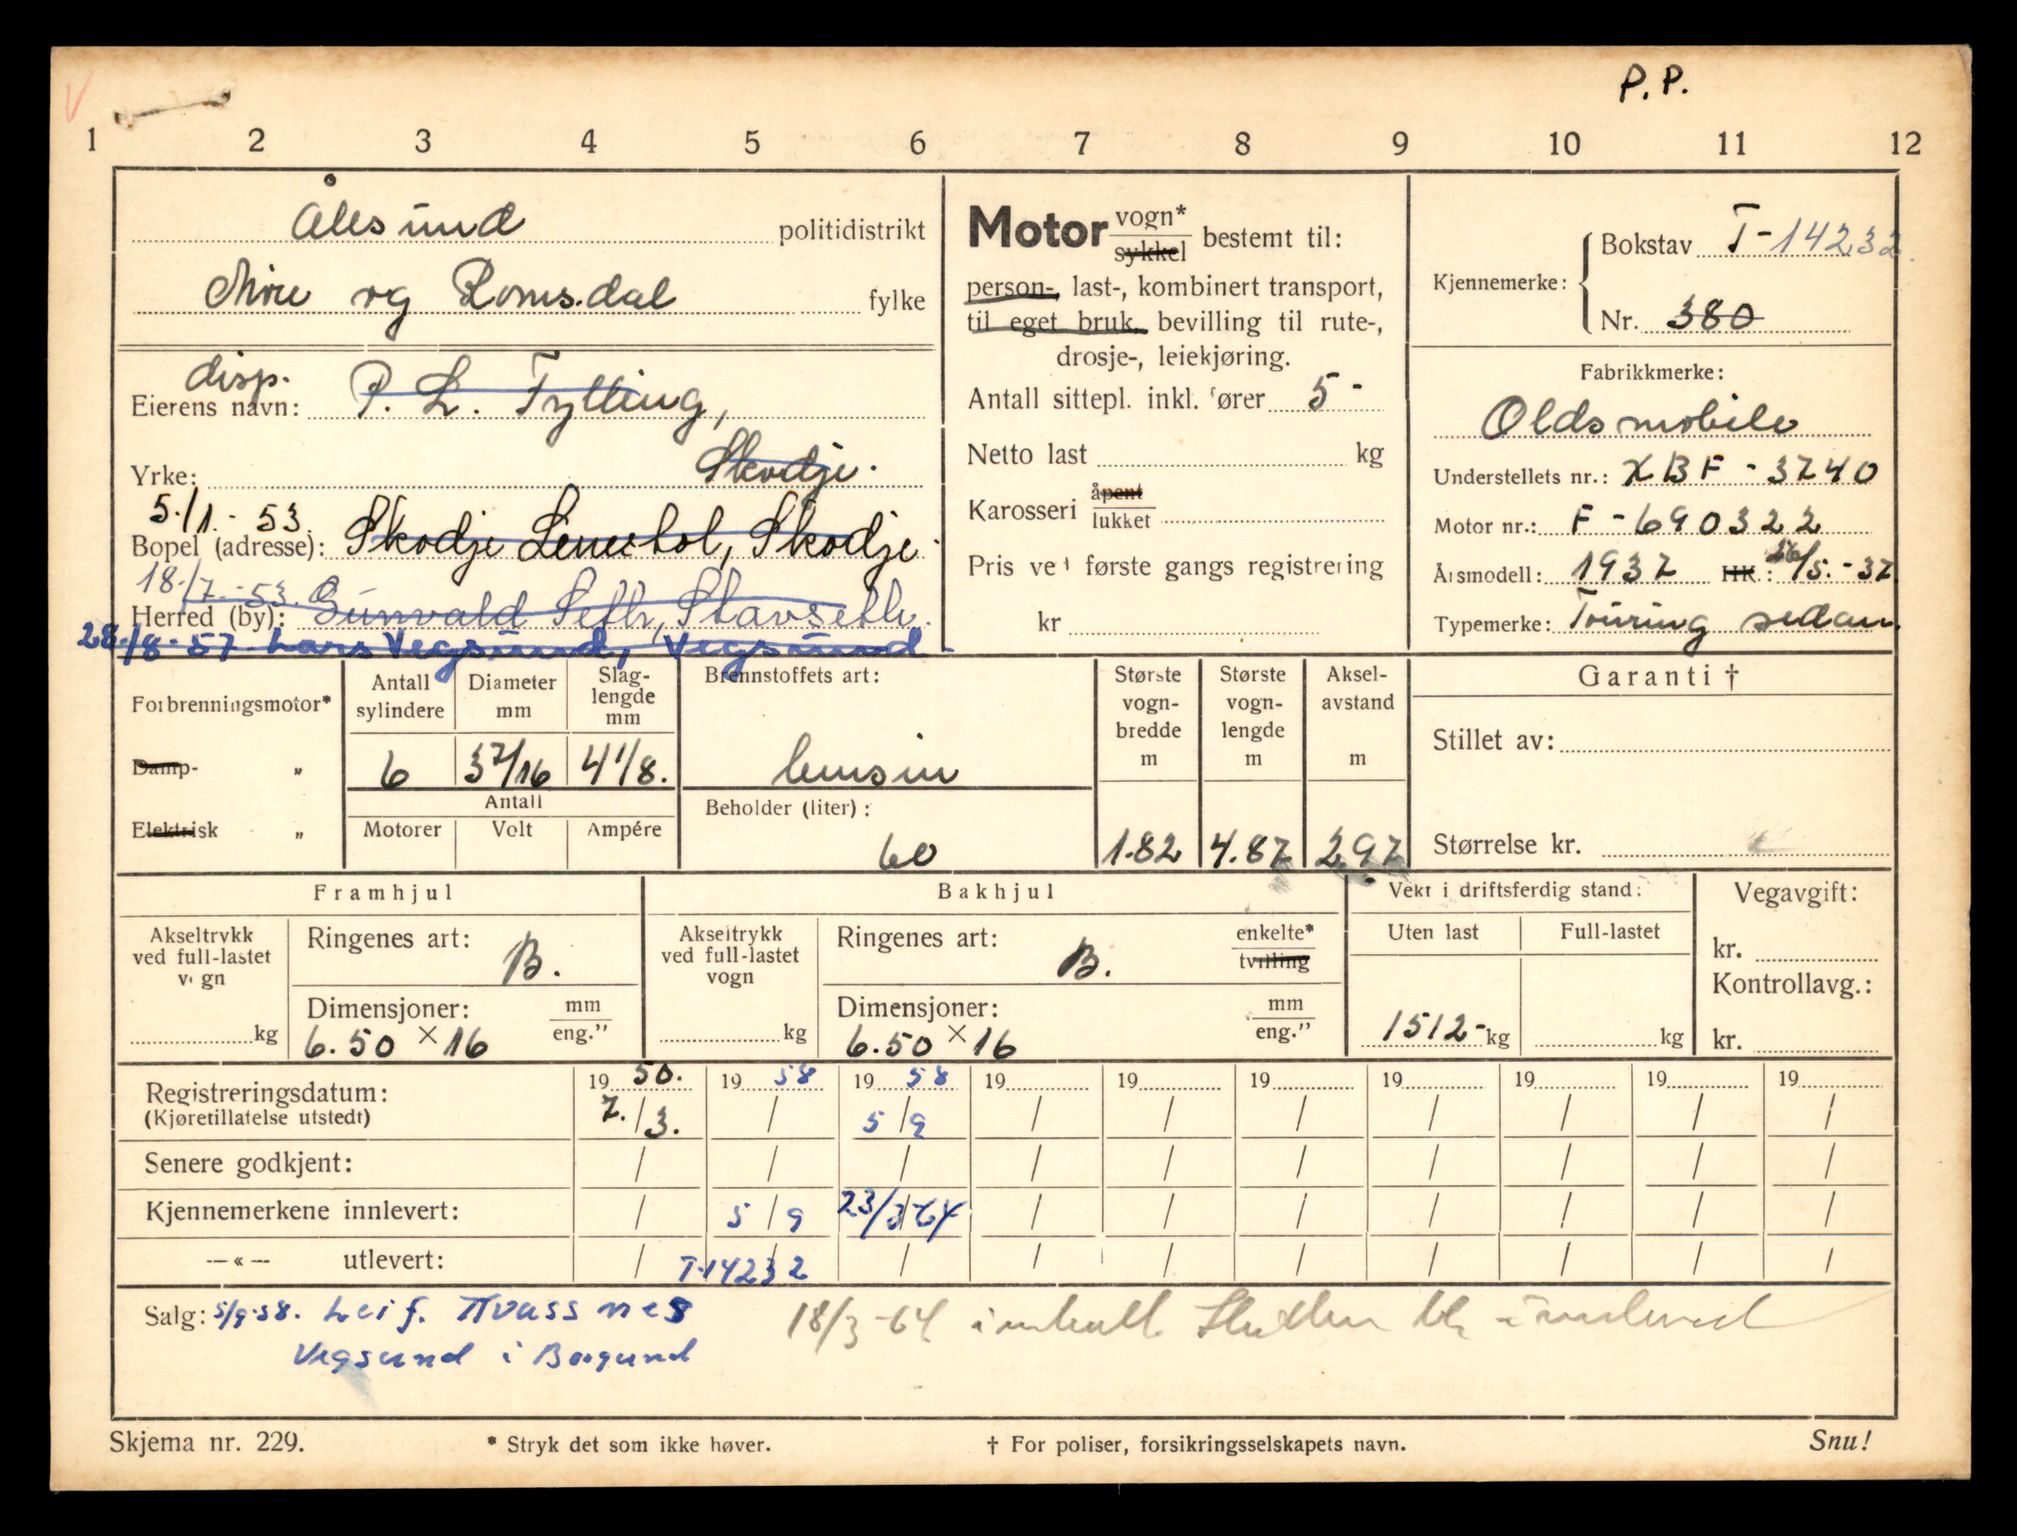 P. P.
1 2 3 4 5 6 7 8 9 10 11 12
Ålesund politidistrikt
Møre og Romsdal fylke
disp.
Eierens navn: P. L. Fylling,
Yrke: Skodje.
5./1. - 53.
Bopel (adresse): Skodje Lensehol, Skodje
18./7. - 53.
Herred (by): Gunvald Seth, Stavseth.
28./8. 57. Lars Vegsund, Vegsund
Motor vogn* sykkel bestemt til:
person-, last-, kombinert transport,
til eget bruk, bevilling til rute-,
drosje-, leiekjøring.
Antall sittepl. inkl. fører 5 -
Netto last kg
Karosseri åpent lukket
Pris ved første gangs registrering
kr
Kjennemerke: Bokstav T-14232.
Nr. 380
Fabrikkmerke:
Oldsmobile
Understellets nr.: XBF - 3740
Motor nr.: F - 690322
Årsmodell: 1937 HK.: 26/5. - 37
Typemerke: Touring sedan.
Forbrenningsmotor*
Damp- „
Elektrisk „
Antall sylindere
Diameter mm
Slaglengde mm
6 3 7/16 4 1/8.
Antall
Motorer Volt Ampére
Brennstoffets art:
bensin
Beholder (liter):
60
Største vognbredde m
1.82
Største vognlengde m
4.87
Akselavstand m
2.97
Garanti †
Stillet av:
Størrelse kr.
Framhjul
Akseltrykk ved full-lastet vogn
kg
Ringenes art: B.
Dimensjoner: mm eng.”
6.50 × 16
Bakhjul
Akseltrykk ved full-lastet vogn
kg
Ringenes art: B. enkelte* tvilling
Dimensjoner: mm eng.”
6.50 × 16
Vekt i driftsferdig stand:
Uten last Full-lastet
1512 - kg kg
Vegavgift:
kr.
Kontrollavg.:
kr.
Registreringsdatum: 19 50. 19 58 19 58 19 19 19 19 19 19 19
(Kjøretillatelse utstedt) 7. / 3. / 5 / 9 / / / / / / /
Senere godkjent: / / / / / / / / / /
Kjennemerkene innlevert: / 5 / 9 23/3-64 / / / / / / /
—«— utlevert: / T-14232 / / / / / / / /
Salg: 5/9-58. Leif. Kvassnes 18/3-64
Vegsund i Borgund
Skjema nr. 229. * Stryk det som ikke høver. † For poliser, forsikringsselskapets navn. Snu!